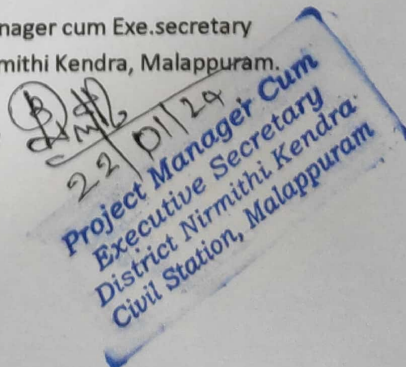 nager cum Exe.secretary
mithi Kendra, Malappuram.
22/01/24
Project Manager Cum
Executive Secretary
District Nirmithi Kendra
Civil Station, Malappuram